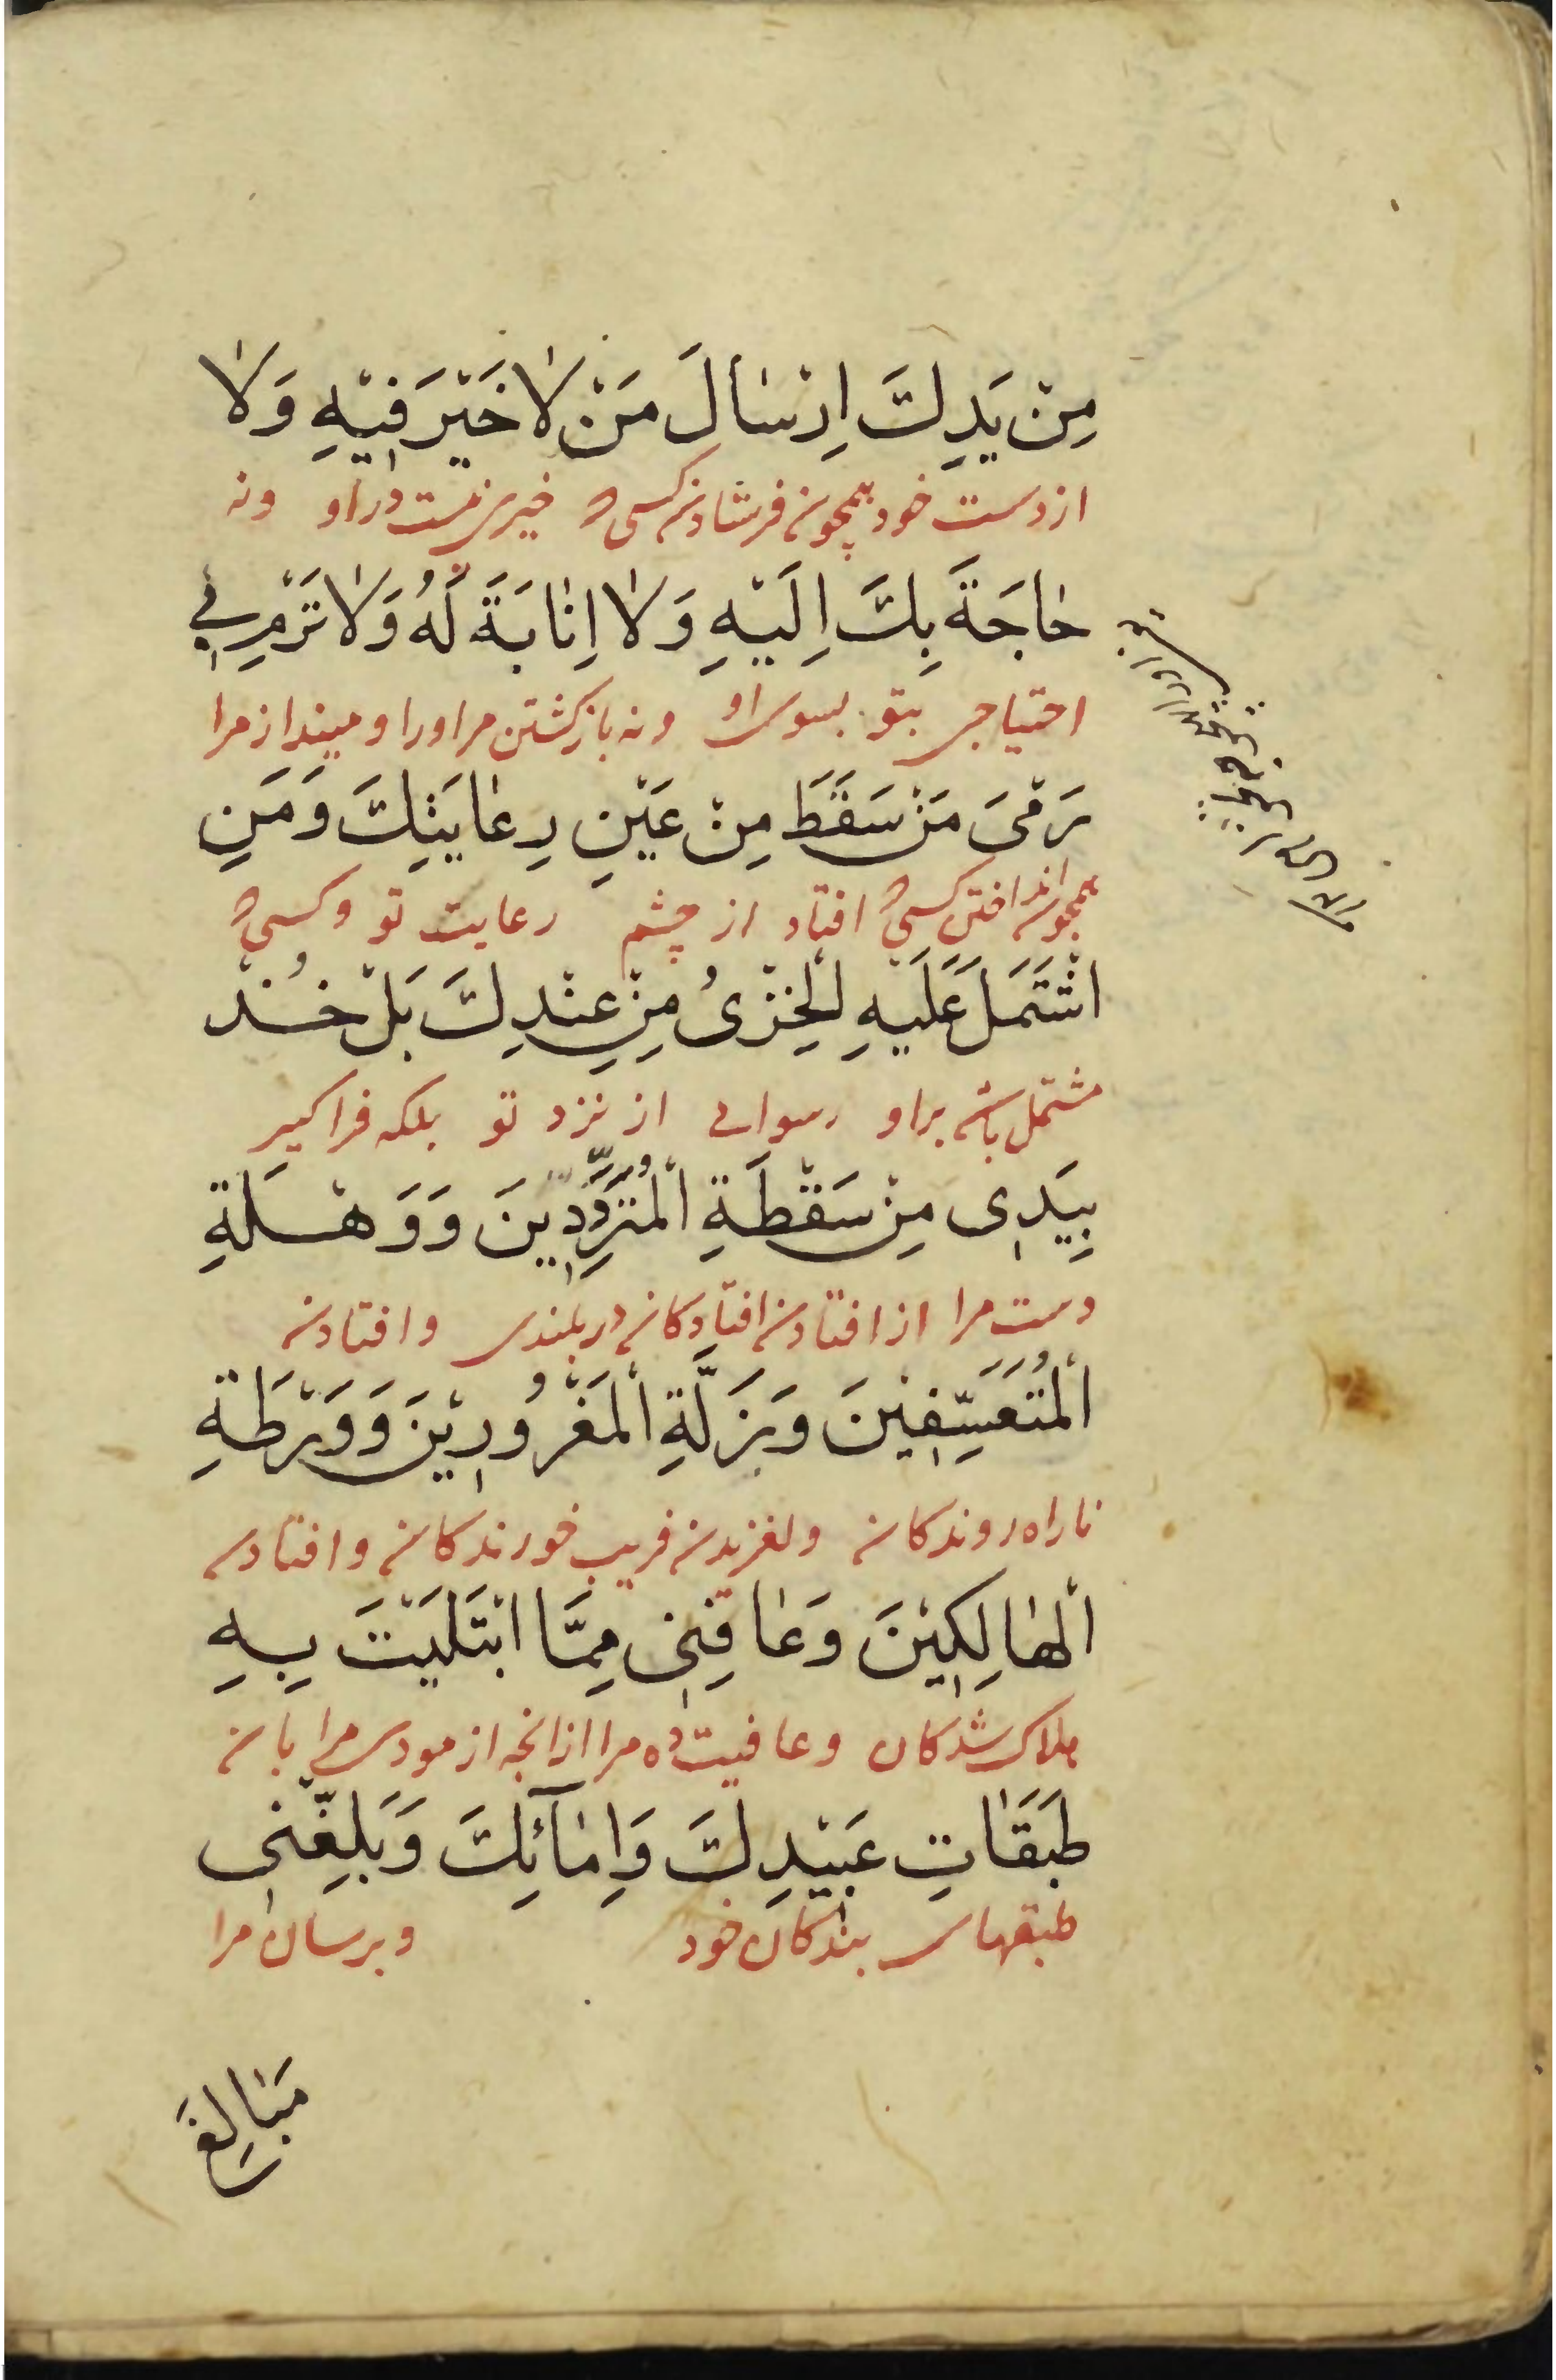 مِنْ يَدِكَ اِرْسٰالَ مَنْ لاٰ خَيْرَ فِيْهِ وَلاٰ
از دست خود همچون فرستادن كسى كه خيرى نيست در او ونه
حٰاجَةَ بِكَ اِلَيْهِ وَلاٰ اِنٰابَةَ لَهُ وَلاٰ تَرْمِ بِي
احتياجى بتو بسوى او ونه بازكشتن مر او را و مينداز مرا
رَمْىَ مَنْ سَقَطَ مِنْ عَيْنِ رِعٰايَتِكَ وَمَنِ
همچون انداختن كسى كه افتاد از چشم رعايت تو وكسى كه
اشْتَمَلَ عَلَيْهِ الْخِزْىُ مِنْ عِنْدِكَ بَلْ خُذْ
مشتمل باشد بر او رسوايى از نزد تو بلكه فراكير
بِيَدِى مِنْ سَقْطَةِ الْمُتَرَدِّيْنَ وَوَهْلَةِ
دست مرا از افتادن افتادكان در بلندى و افتادن
الْمُتَعَسِّفِيْنَ وَزَلَّةِ الْمَغْرُورِيْنَ وَوَرْطَةِ
ناراه روندكان ولغزيدن فريب خورندكان وافتادن
الْهٰالِكِيْنَ وَعٰافِنِى مِمَّا ابْتَلَيْتَ بِهِ
هلاك شدكان وعافيت ده مرا از انچه ازمودى مرا بان
طَبَقٰاتِ عَبِيْدِكَ وَاِمٰآئِكَ وَبَلِّغْنِى
طبقهاى بندكان خود وبرسان مرا
مَبٰالِغَ